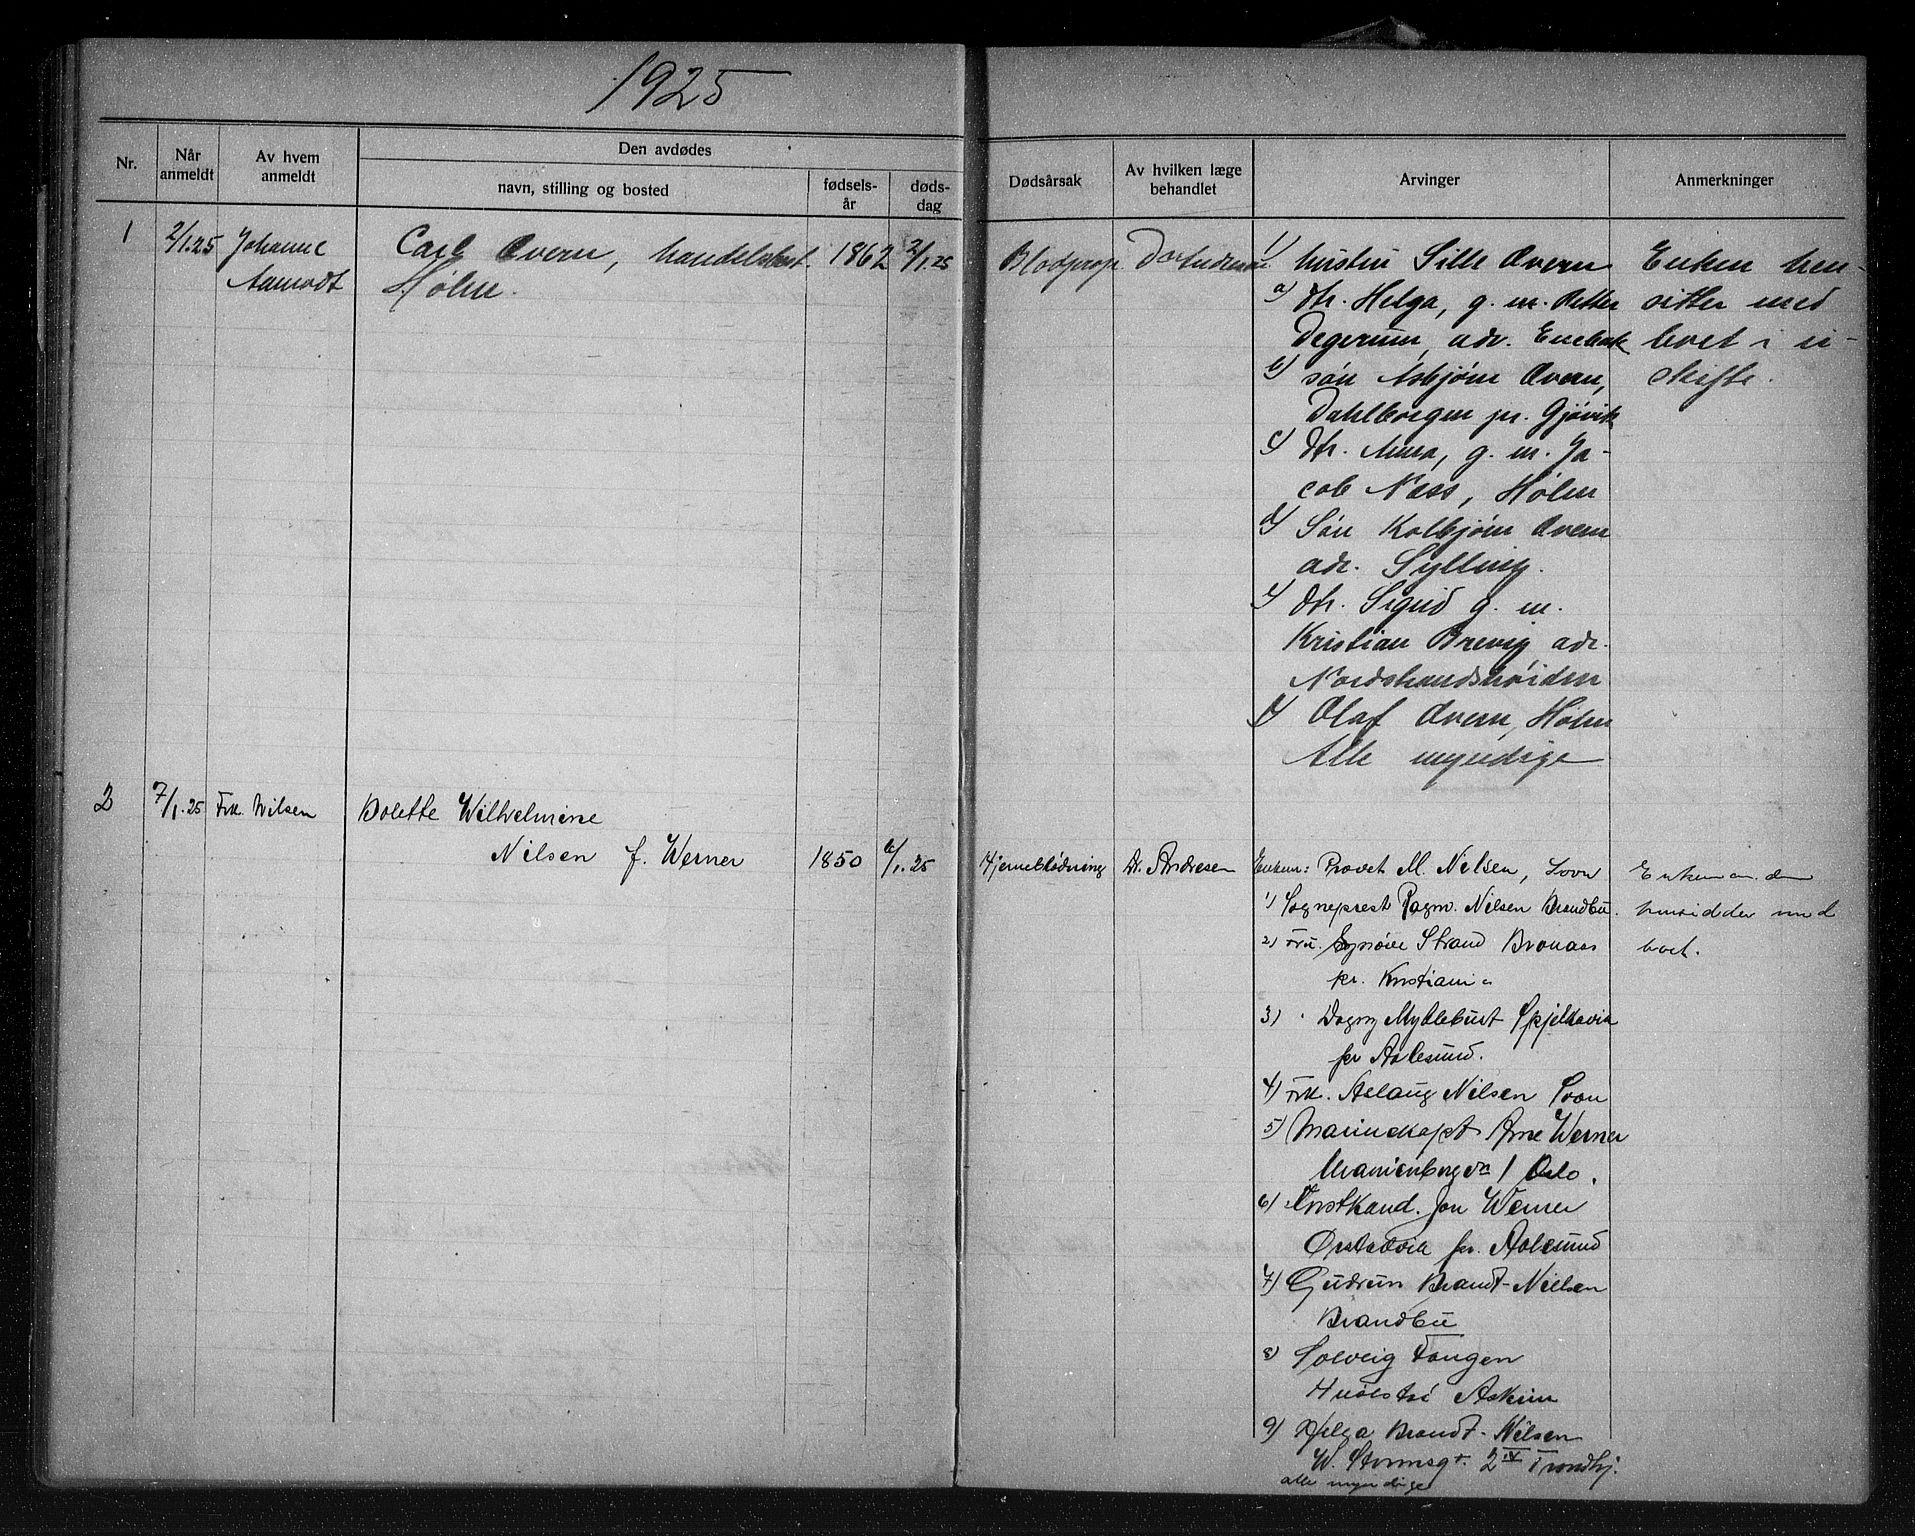 1925
Nr.
Når anmeldt
Av hvem anmeldt
Den avdødes
navn, stilling og bosted
fødsels-år
døds-dag
Dødsårsak
Av hvilken læge behandlet
Arvinger
Anmerkninger
1 2/1.25 Johanne Carl Overn, 1862 2/1.25 Blodprop 1) hustru Sille Overn Enken hen-
Aamodt Hølen. a) dtr. Helga, g. m. Petter sitter med
Degerum, adr. Enebak boet i u-
b) søn Asbjørn Overn, skifte.
Dahlborgen pr. Gjøvik
c) dtr. Anna, g. m. Ja-
cob Næss, Hølen
d) Søn Kolbjørn Overn
adr. Sylling.
e) dtr. Sigrid g. m.
Kristian Brevig adr.
Nordstrandshøiden
f) Olaf Overn, Hølen
Alle myndige
2 7/1.25 Frk. Nilsen Bolette Wilhelmine
Nilsen f. Werner 1850 6/1.25 Hjerneblødning Dr. Andresen Enkem: Provst M. Nilsen, Soon Enkemanden
1) Sogneprest Ragnv. Nilsen Brandbu. hensidder med
2) Fru. Synøve Strand Bronaas boet.
pr. Kristiania
3) " Dagny Myklebust Spjelkavik
pr Aalesund.
4) Frk. Aslaug Nilsen Soon
5) Marinekapt Arne Werner
1 Oslo.
6) Forstkand. Jon Werner
Ørstadvik pr. Aalesund
7) Gudrun Brandt-Nilsen
Brandbu
8) Solveig Fangen
Askim
9) Helga Brandt-Nilsen
W. Stormsgt. 2 IV Trondhj.
alle myndige